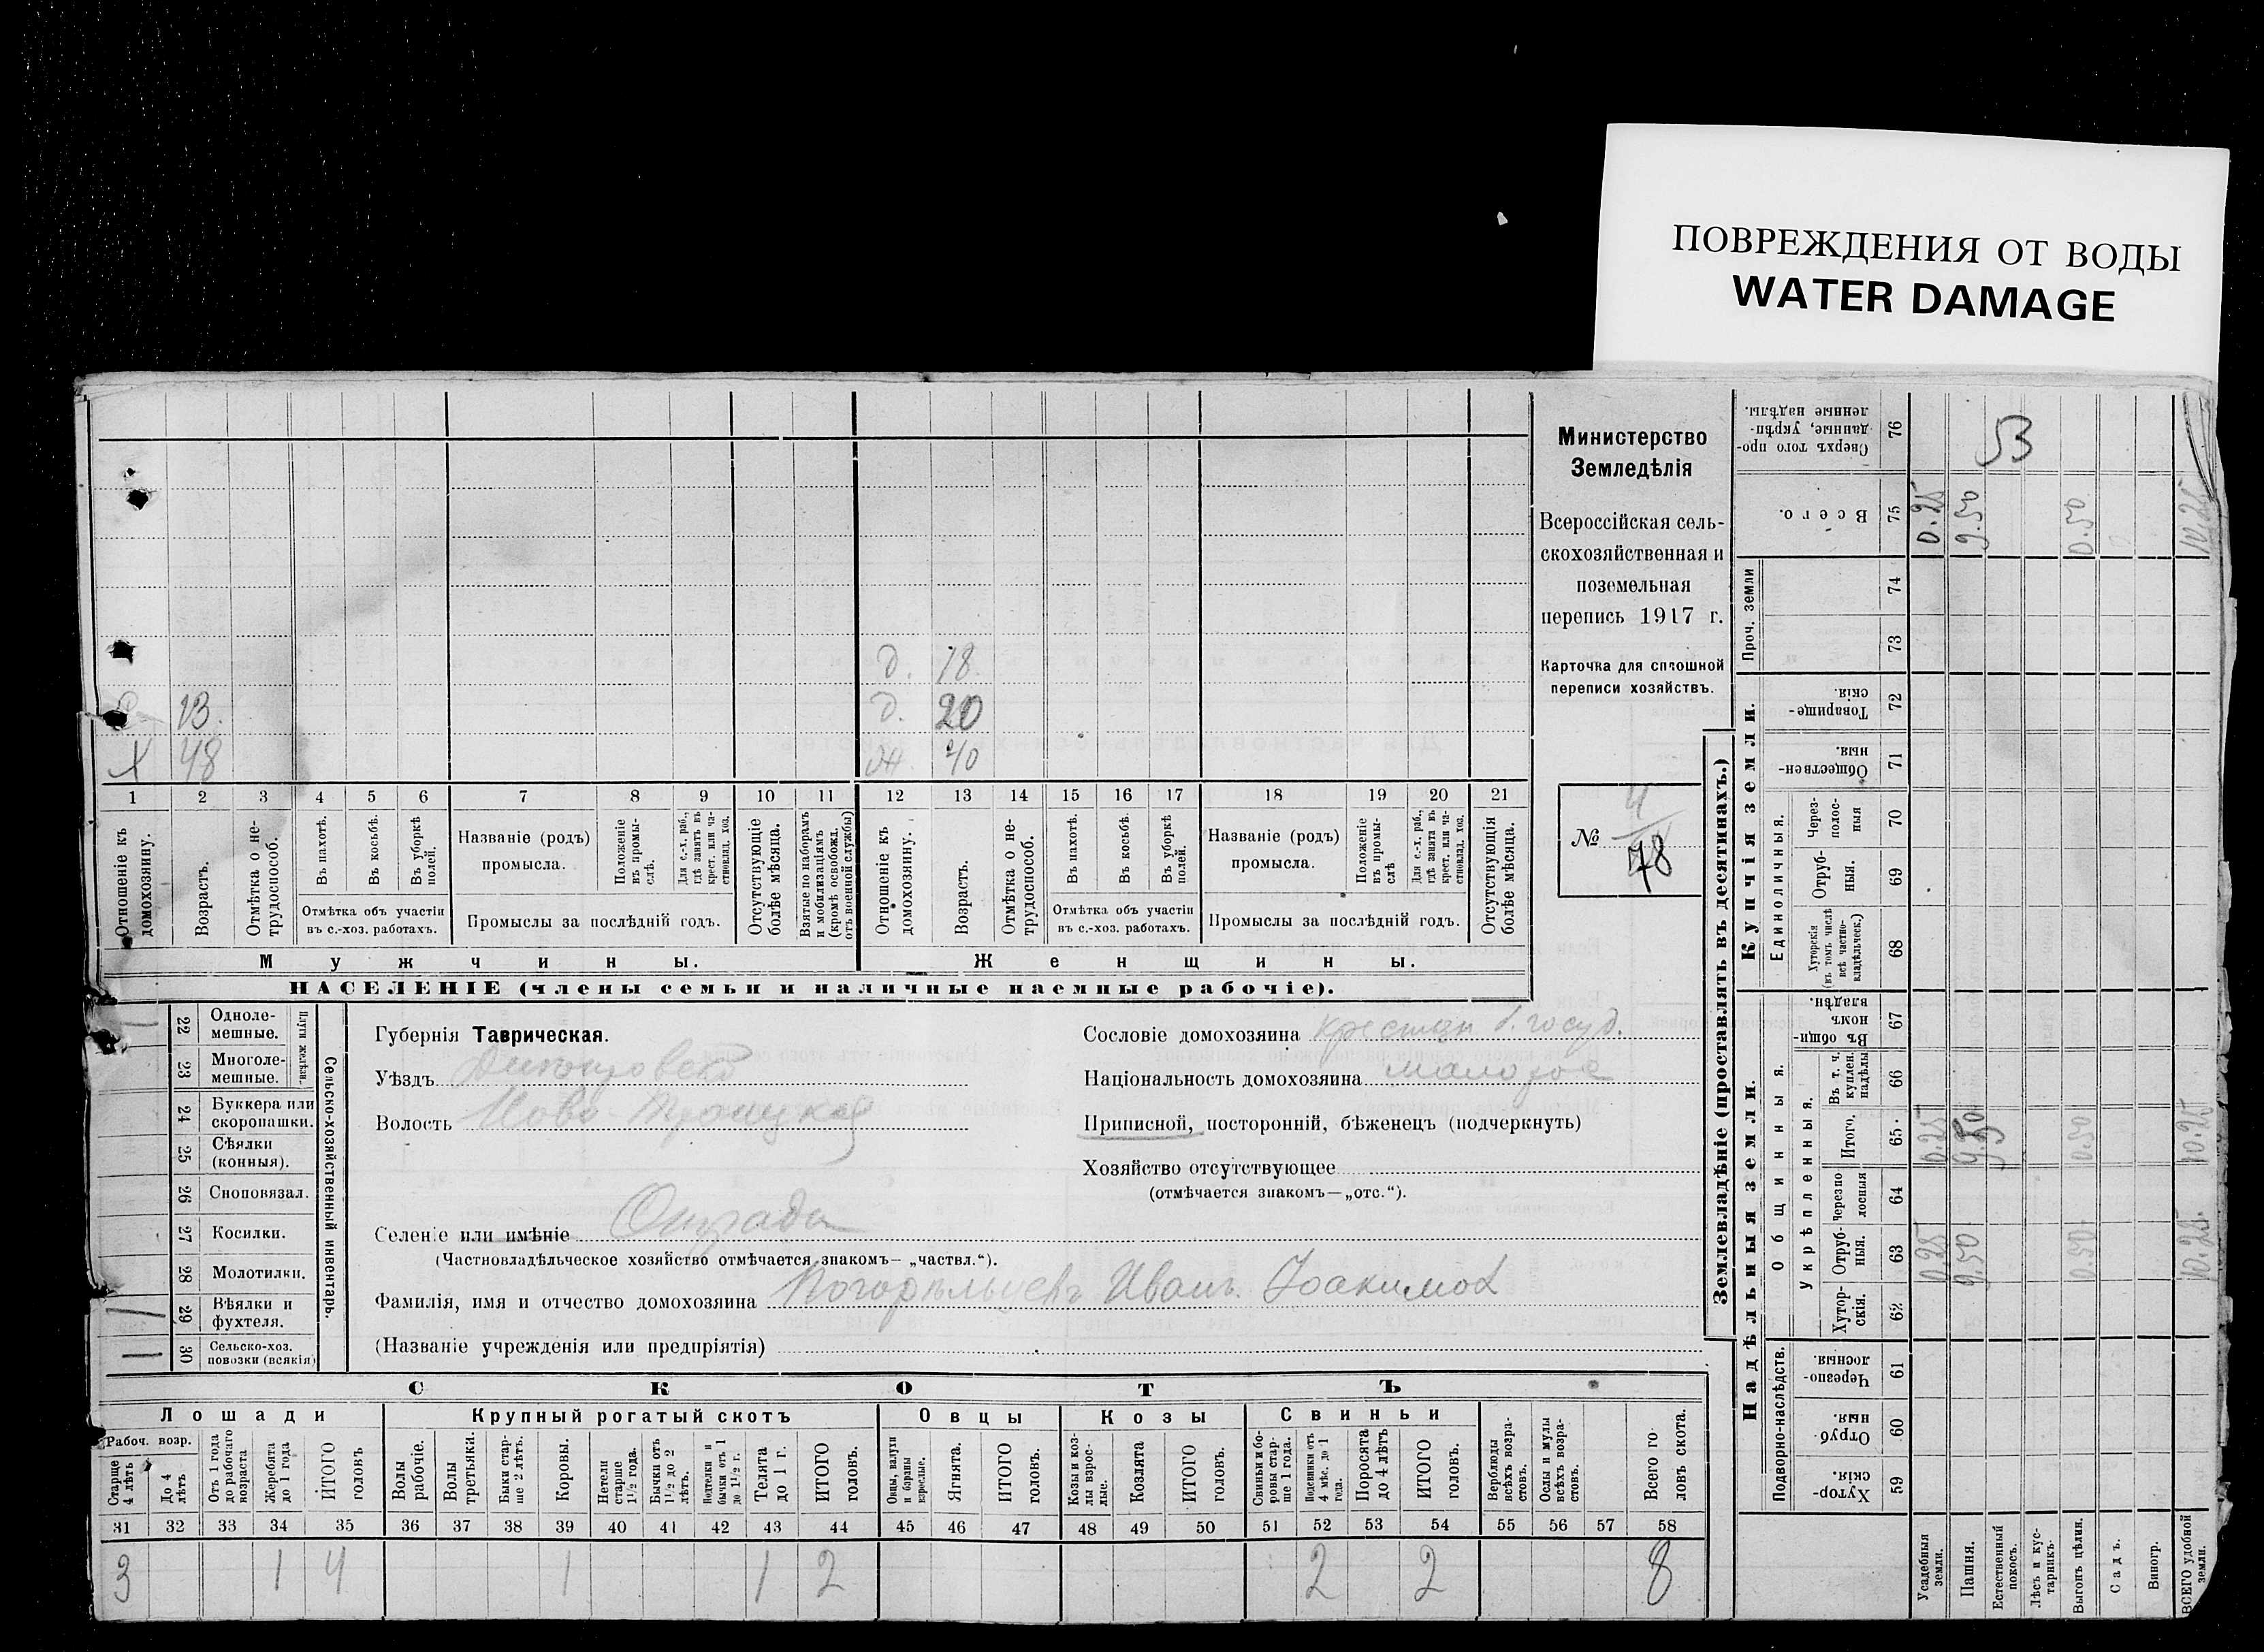 ПОВРЕЖДЕНИЯ ОТ ВОДЫ
WATER DAMAGE
Министерство
Земледѣлія
Всероссійская сель-
скохозяйственная и
поземельная
перепись 1917 г.
Карточка для сплошной
переписи хозяйствъ.
№ 4
78
д. 18
13. д. 20
X 48 ж. 40
1 2 3 4 5 6 7 8 9 10 11 12 13 14 15 16 17 18 19 20 21
Отношеніе къ домохозяину.
Возрастъ.
Отмѣтка о не-трудоспособ.
Въ пахотѣ.
Въ косьбѣ.
Въ уборкѣ полей.
Отмѣтка объ участіи въ с.-хоз. работахъ.
Названіе (родъ) промысла.
Положеніе въ промы-слѣ.
Для с.-х. раб., гдѣ занятъ въ крест. или ча-стновлад. хоз.
Промыслы за послѣдній годъ.
Отсутствующіе болѣе мѣсяца.
Взятые по наборамъ и мобилизаціямъ (кромѣ освобожд. отъ военной службы)
Отношеніе къ домохозяину.
Возрастъ.
Отмѣтка о не-трудоспособ.
Въ пахотѣ.
Въ косьбѣ.
Въ уборкѣ полей.
Отмѣтка объ участіи въ с.-хоз. работахъ.
Названіе (родъ) промысла.
Положеніе въ промы-слѣ
Для с.-х. раб., гдѣ занята въ крест. или ча-стновлад. хоз.
Промыслы за послѣдній годъ.
Отсутствующія болѣе мѣсяца.
Мужчины. Женщины.
НАСЕЛЕНІЕ (члены семьи и наличные наемные рабочіе).
22 Одноле-мешные.
23 Многоле-мешные.
Плуги желѣзн.
24 Буккера или скоропашки.
25 Сѣялки (конныя).
26 Сноповязал.
27 Косилки.
28 Молотилки.
29 Вѣялки и фухтеля.
30 Сельско-хоз. повозки (всякія)
Сельско-хозяйственный инвентарь.
Губернія Таврическая.
Уѣздъ Днепровскій
Волость Ново-Троицкая
Селеніе или имѣніе Отрада
(Частновладѣльческое хозяйство отмѣчается знакомъ— „частвл.“).
Фамилія, имя и отчество домохозяина Погорѣльцевъ Иванъ Іоакимов
(Названіе учрежденія или предпріятія)
Сословіе домохозяина крестян б. госуд.
Національность домохозяина малорос
Приписной, посторонній, бѣженецъ (подчеркнуть)
Хозяйство отсутствующее
(отмѣчается знакомъ—„отс.“).
СКОТЪ
Лошади Крупный рогатый скотъ Овцы Козы Свиньи
Рабоч. возр.
Старше 4 лѣтъ
До 4 лѣтъ
Отъ 1 года до рабочаго возраста
Жеребята до 1 года
ИТОГО головъ
Волы рабочіе.
Волы третьяки.
Быки стар-ше 2 лѣтъ.
Коровы.
Нетели старше 1½ года.
Бычки отъ 1½ до 2 лѣтъ.
Подтелки и бычки отъ 1 до 1½ г.
Телята до 1 г.
ИТОГО головъ.
Овцы, валухи и бараны взрослые.
Ягнята.
ИТОГО головъ.
Козы и коз-лы взрос-лые.
Козлята
ИТОГО головъ.
Свиньи и бо-ровы стар-ше 1 года.
Подсвинки отъ 4 мѣс. до 1 года.
Поросята до 4 лѣтъ
ИТОГО головъ.
Верблюды всѣхъ возра-стовъ.
Ослы и мулы всѣхъ возра-стовъ.
Всего го-ловъ скота.
31 32 33 34 35 36 37 38 39 40 41 42 43 44 45 46 47 48 49 50 51 52 53 54 55 56 57 58
3 1 4 1 1 2 2 2 8
Землевладѣніе (проставлять въ десятинахъ.)
Купчія земли.
Надѣльныя земли.
Проч. земли
Единоличныя.
Общинныя.
Укрѣпленныя.
Подворно-наслѣдств.
Сверхъ того про-данные, укрѣп-ленные надѣлы. 76 53
Всего. 75 0.25 9.50 0.50 10.25
74
73
Товарище-скія. 72
Обществен-ныя. 71
Через-полос-ныя 70
Отруб-ныя. 69
Хуторскія (въ томъ числѣ всѣ частно-владѣльческ.) 68
Въ общи-номъ владѣн. 67
Въ т. ч. куплен. надѣлы 66
Итого. 65 0.25 9.50 0.50 10.25
Черезпо лосныя 64
Отруб-ныя. 63 0.25 9.50 0.50 10.25
Хутор-скія. 62
Черезпо-лосныя. 61
Отруб ныя. 60
Хутор-скія. 59
Усадебныя земли.
Пашня.
Естественный покосъ.
Лѣсъ и кус-тарникъ.
Выгонъ цѣлин.
Садъ.
Виногр.
ВСЕГО удобной земли.